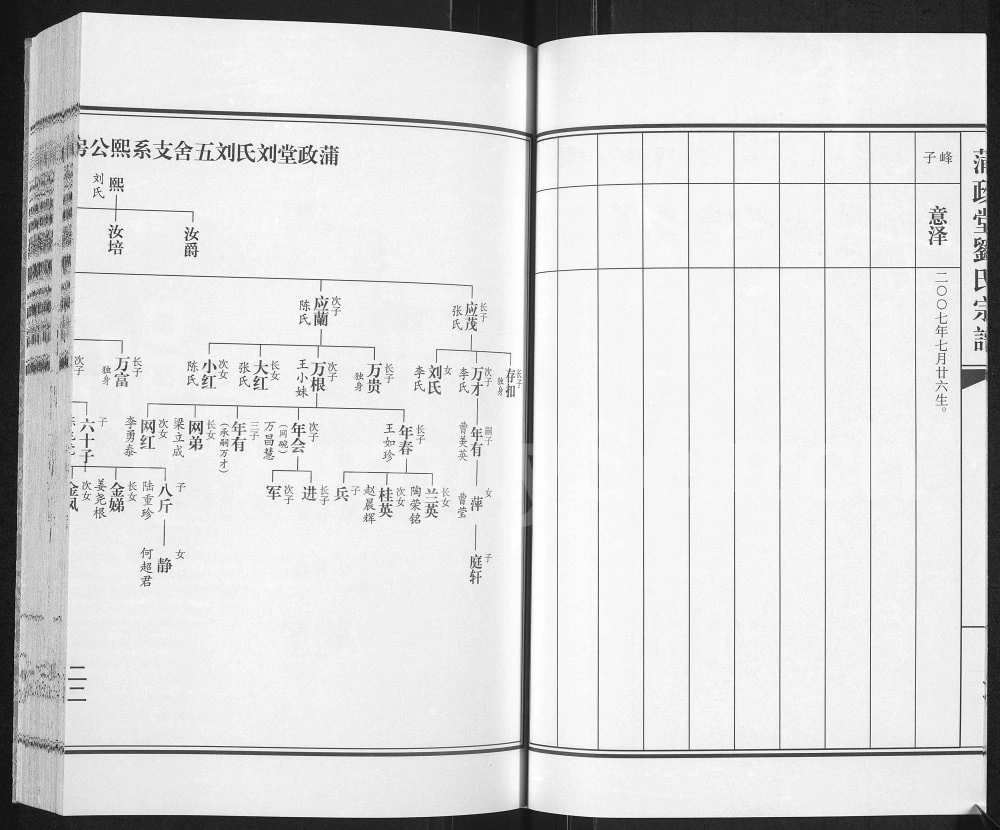 蒲政堂劉氏宗譜
峰子
意泽
二〇〇七年七月廿六生。
蒲政堂刘氏刘五舍支系熙公房
熙
刘氏
汝爵
汝培
长子
应茂
张氏
次子
应蘭
陈氏
长子
存扣
独身
次子
万才
李氏
女
刘氏
李氏
长子
万贵
独身
次子
万根
王小妹
长女
大红
张氏
次女
小红
陈氏
长子
万富
独身
次子
嗣子
年有
曹美英
长子
年春
王如珍
次子
年会
（同晚）
万昌慧
三子
年有
（承嗣万才）
长女
网弟
梁立成
次女
网红
李勇泰
子
六十子
女
萍
曹莹
长女
兰英
陶荣铭
次女
桂英
赵晨辉
子
兵
长子
进
次子
军
子
八斤
陆重珍
长女
金娣
姜尧根
次女
金凤
子
庭轩
女
静
何超君
二二